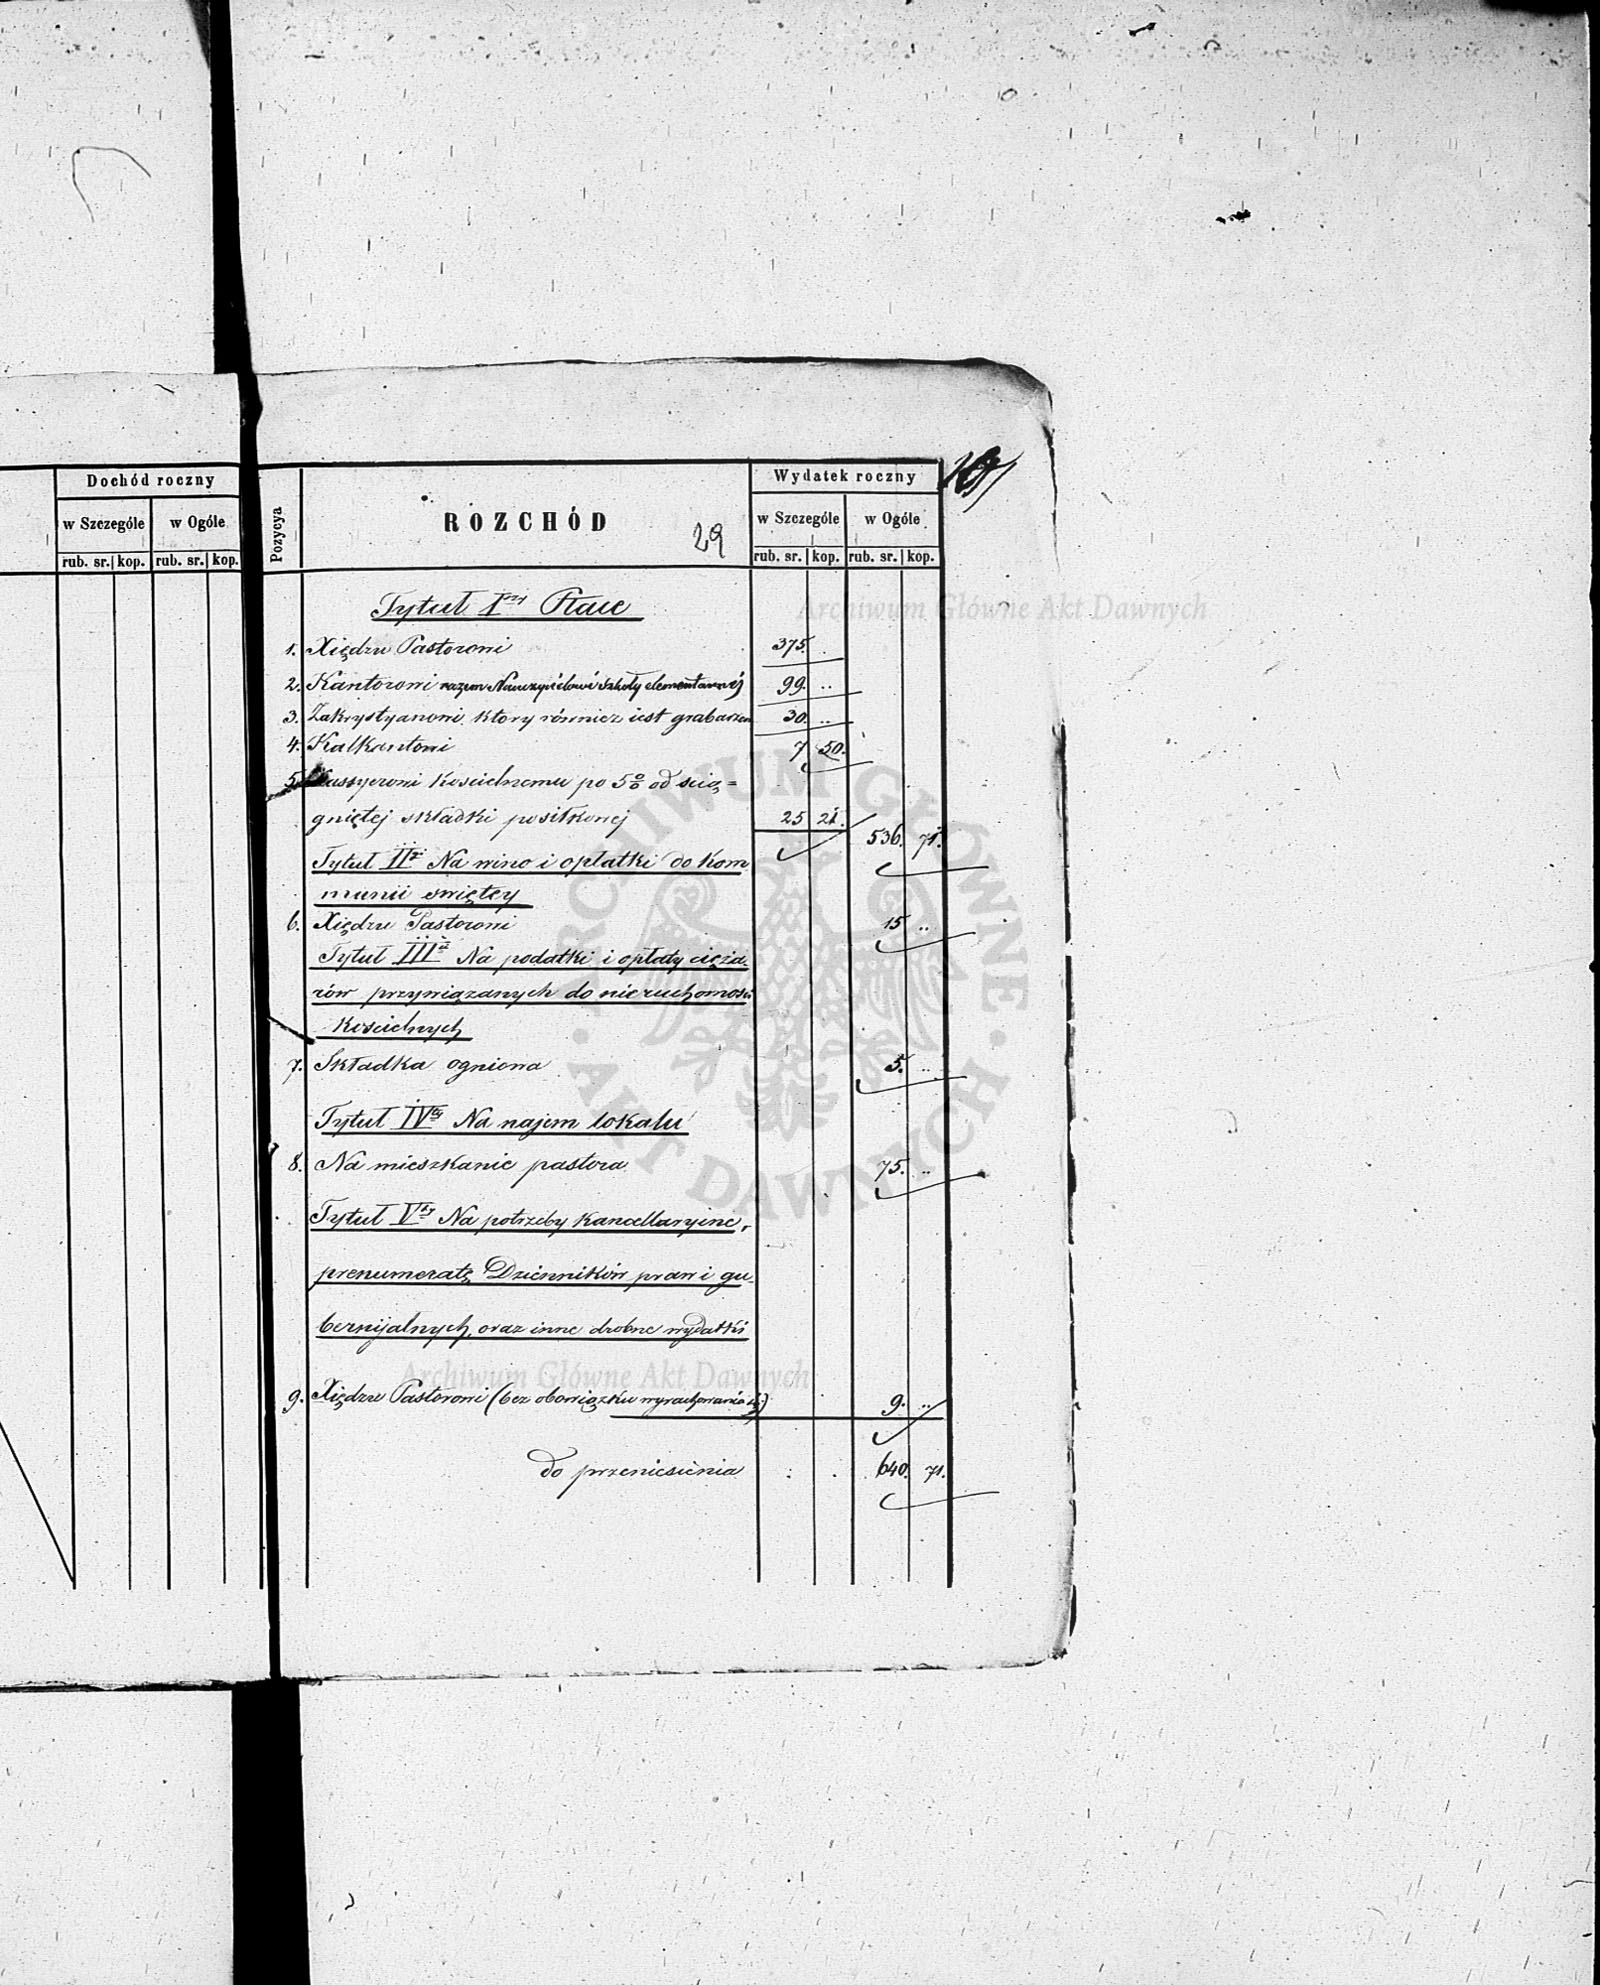 Dochód roczny
w Szczególe | w Ogóle
rub. sr. | kop. | rub. sr. | kop.
Pozycya
ROZCHÓD
29
Wydatek roczny
w Szczególe | w Ogóle
rub. sr. | kop. | rub. sr. | kop.
Tytuł Iszy Płace
1. Xiędzu Pastorowi 375. .
2. Kantorowi razem Nauczycielowi Szkoły elementarnéj 99. ..
3. Zakrystyanowi, ktory rownież iest grabarzem 30. ..
4. Kalkantowi 7 50.
5. Kassyerowi Kościelnemu po 5% od scią=
gniętej składki posiłkowej 25 21. 536. 71.
Tytuł IIgi Na wino i opłatki do Kom
munii swiętey
6. Xiędzu Pastorowi 15 ..
Tytuł IIIci Na podatki i opłaty cięża-
rów przywiązanych do nieruchomości
Kościelnych
7. Składka ogniowa 5. ..
Tytuł IVty Na najem lokalu
8. Na mieszkanie pastora 75. ..
Tytuł Vty Na potrzeby Kancellaryine,
prenumeratę Dzienników praw i gu-
bernijalnych, oraz inne drobne wydatki
9. Xiędzu Pastorowi (bez obowiązku wyrachowania się) 9. ..
do przeniesienia 640. 71.
Archiwum Główne Akt Dawnych
ARCHIWUM GŁÓWNE · AKT DAWNYCH ·
Archiwum Główne Akt Dawnych